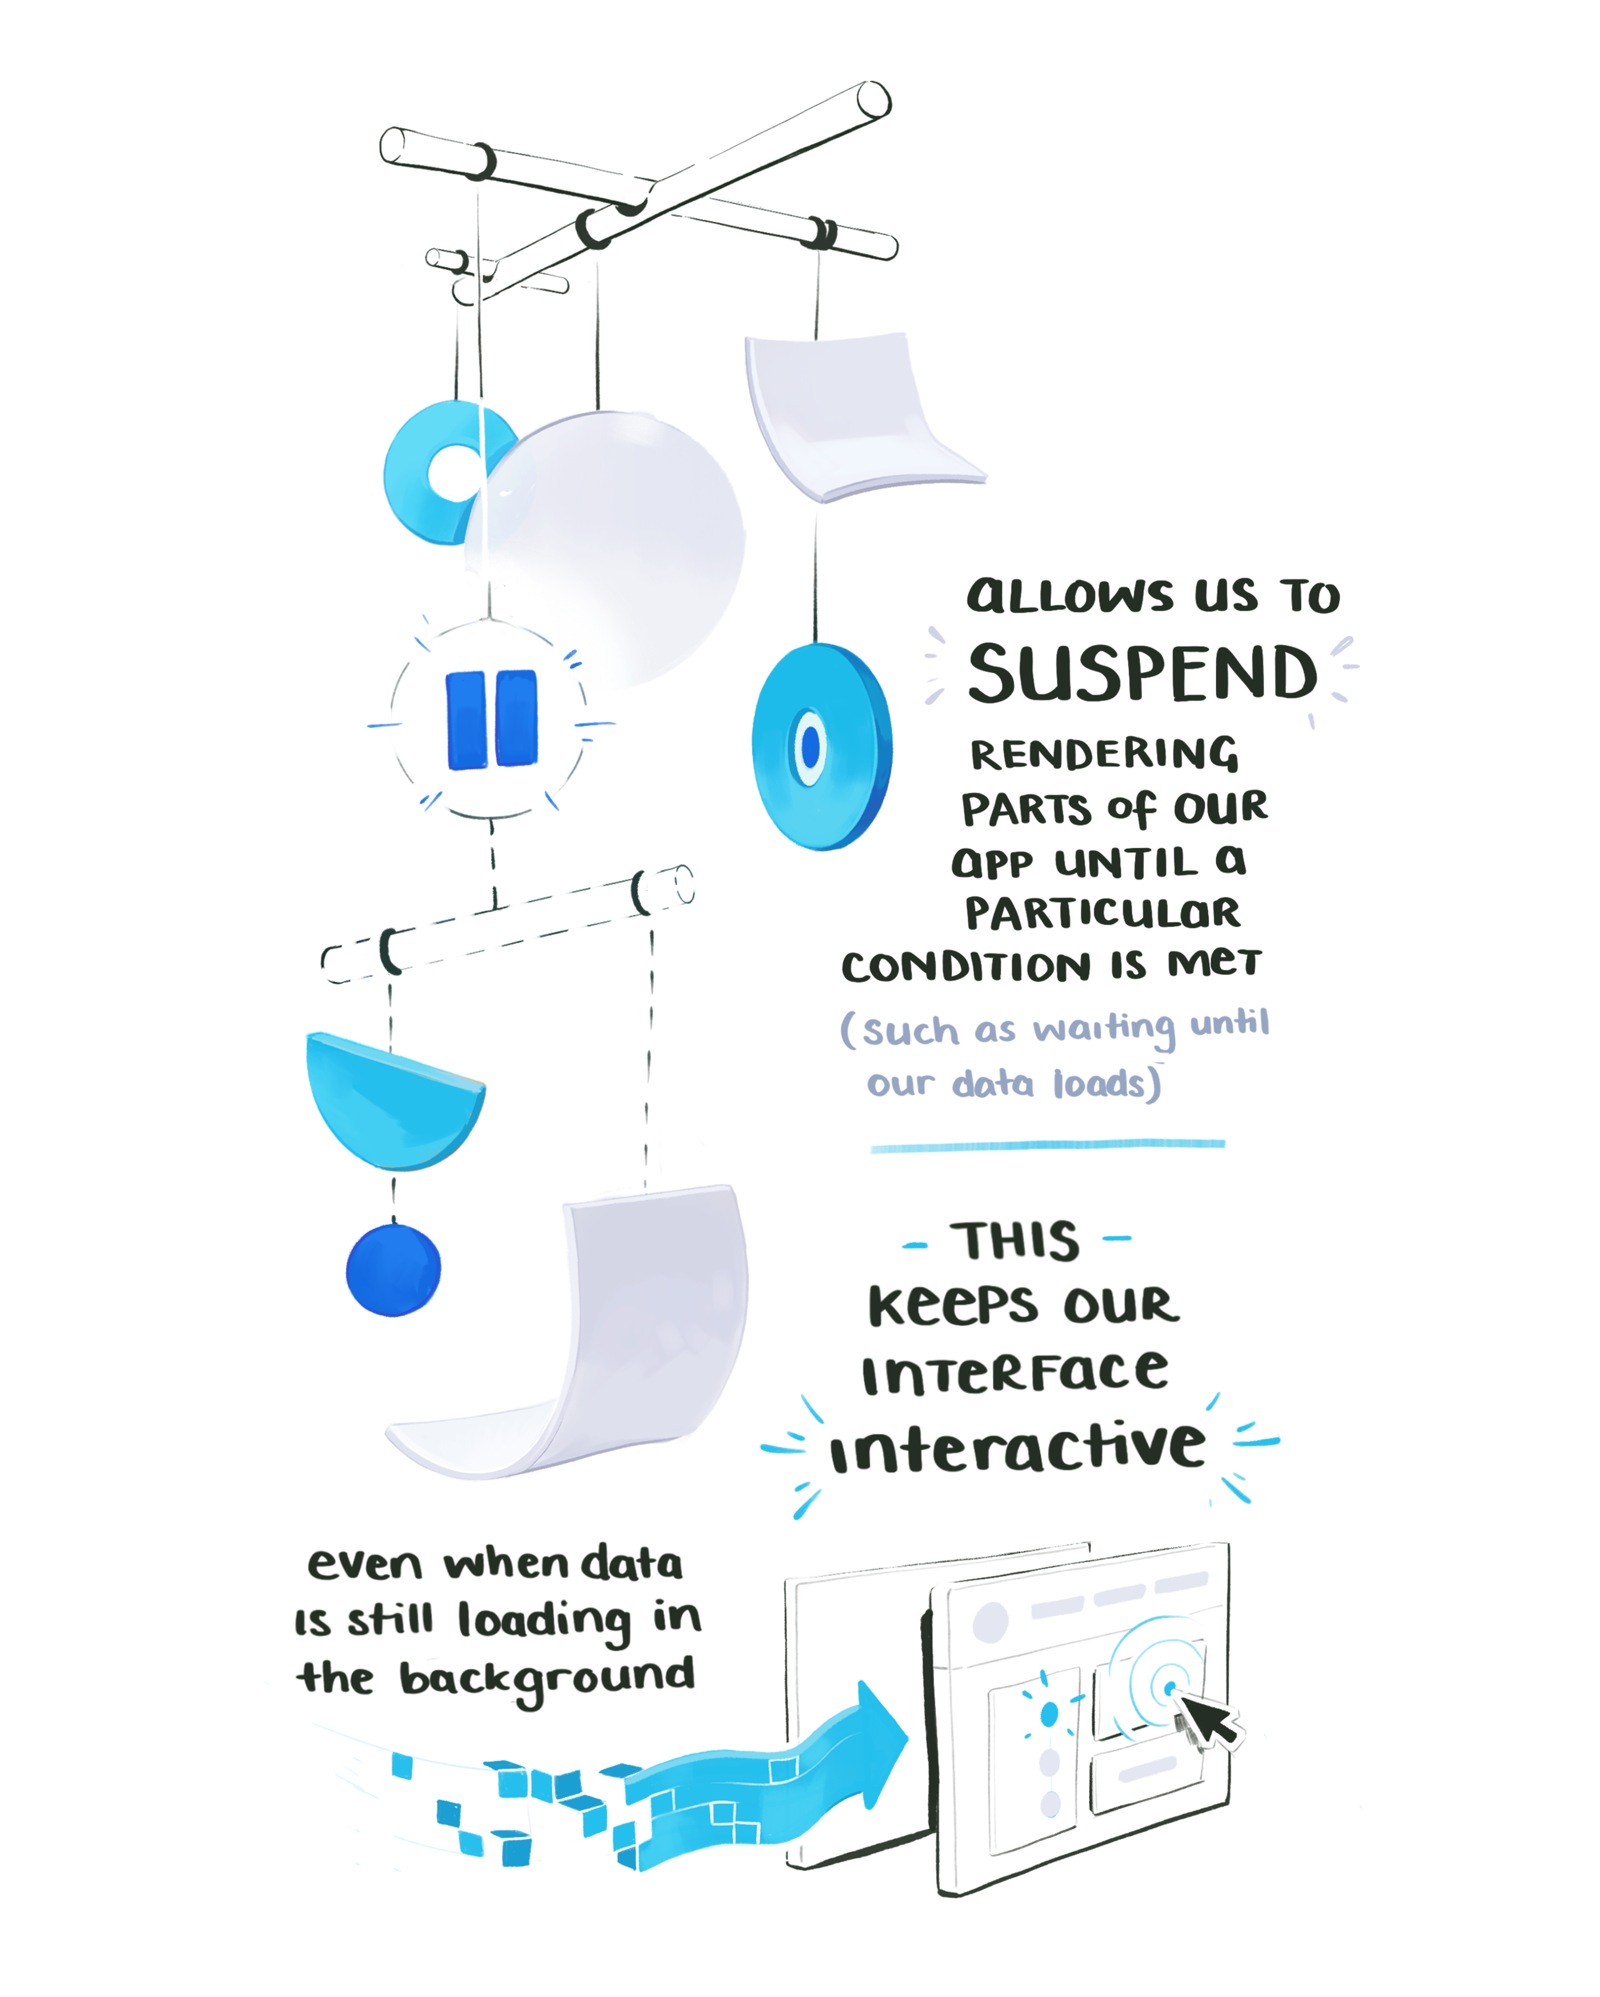 allows us to
SUSPEND
RENDERING
PARTS of OUR
app UNTIL a
PARTICULaR
CONDITION IS MeT
(such as waiting until
our data loads)
- THIS -
KeePS OUR
INTeRFace
interactive
even when data
is still loading in
the background